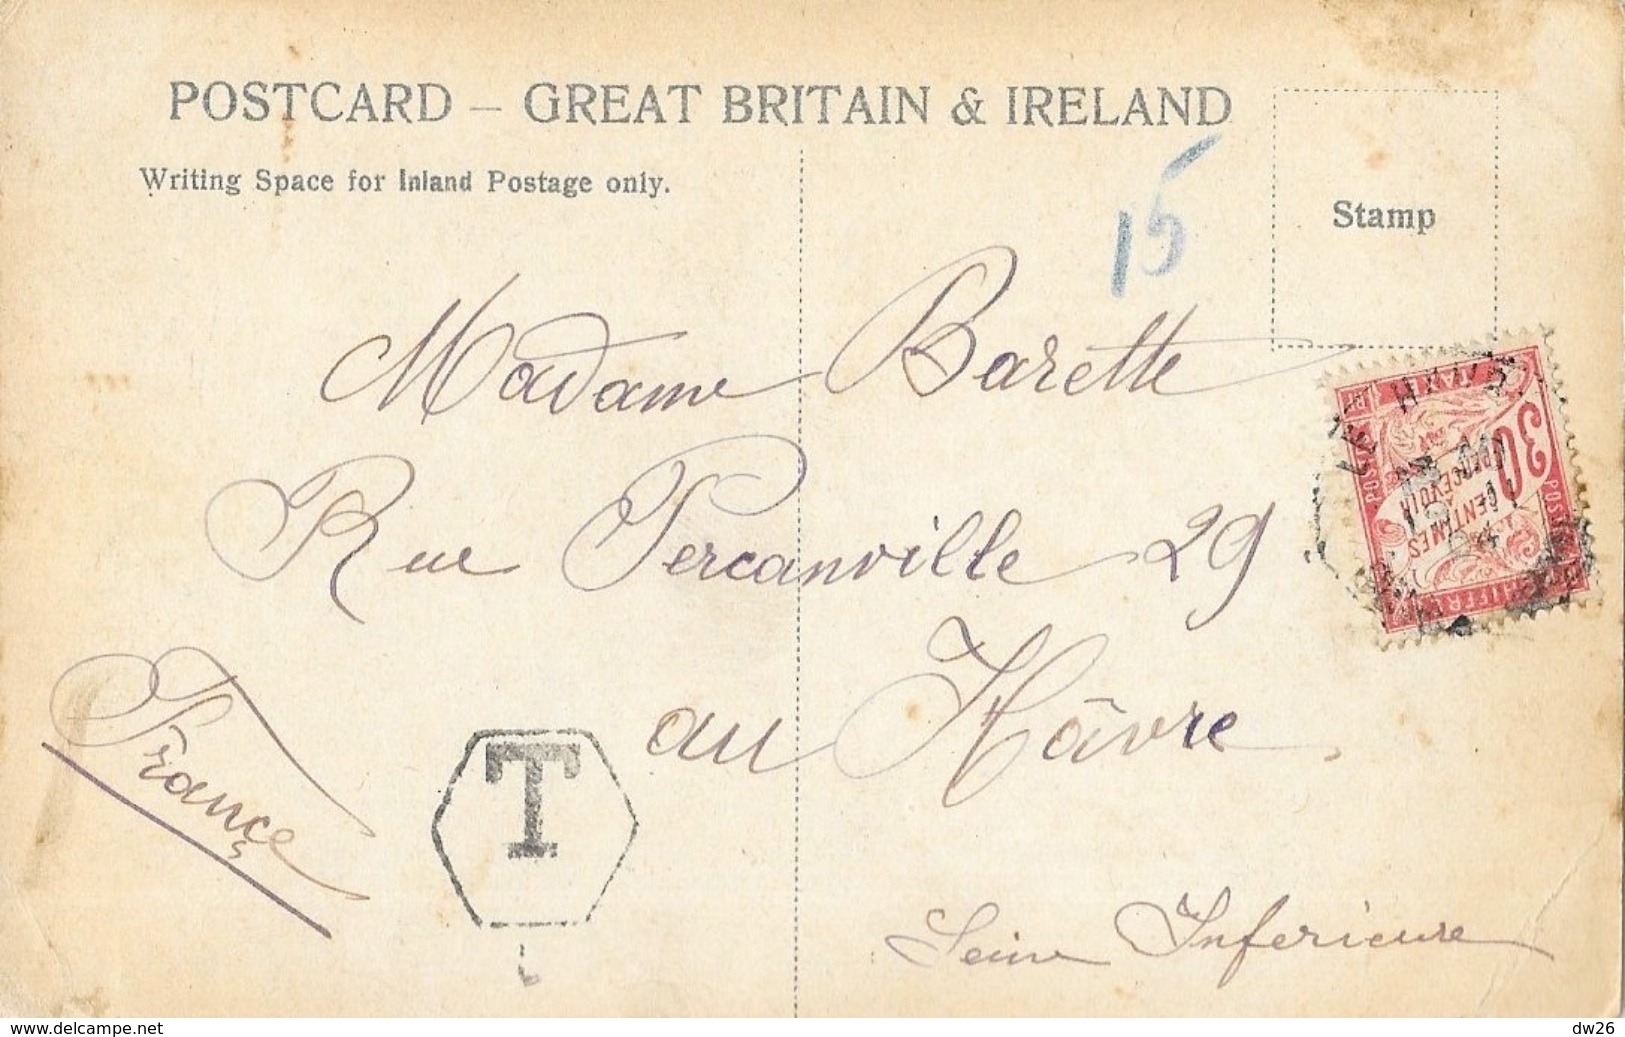 POSTCARD – GREAT BRITAIN & IRELAND
Writing Space for Inland Postage only.
15
Stamp
Madame Barette
Rue Percanville 29
au Hâvre
France
T
Seine Inferieure
30
CENTIMES
A PERCEVOIR
POSTES
www.delcampe.net
dw26